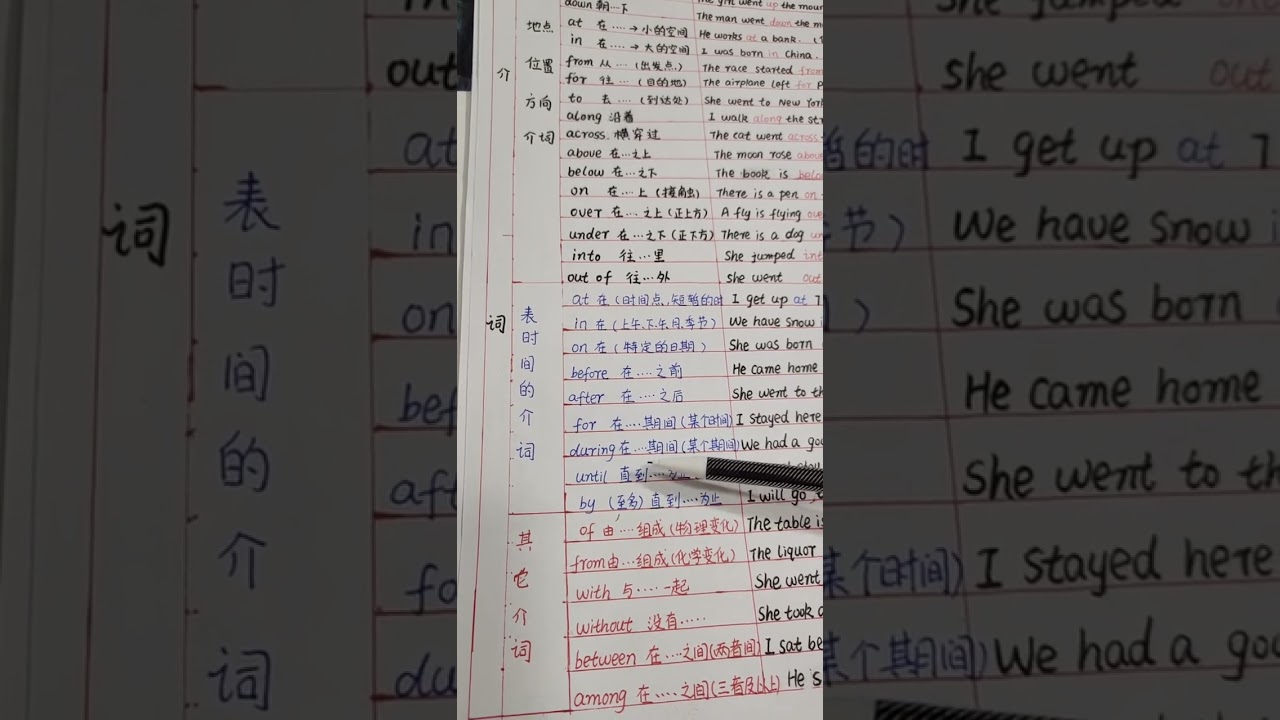 down 朝…下 The girl went up the moun
地点 at 在……→小的空间 The man went down the m
in 在……→大的空间 He works at a bank.
位置 from 从…(出发点) I was born in China.
介 for 往…(目的地) The race started from
方向 to 去…(到达处) The airplane left for P
along 沿着 She went to New York
介词 across 横穿过 I walk along the str
above 在…之上 The cat went across
below 在…之下 The moon rose above
on 在…上(接触) The book is below
over 在…之上(正上方) There is a pen on
under 在…之下(正下方) A fly is flying over
into 往…里 There is a dog un
out of 往…外 She jumped into
she went out
词
表时间的介词
at 在(时间点,短暂的时 I get up at 7
in 在(上午、下午、月、季节) We have snow i
on 在(特定的日期) She was born
before 在……之前 He came home
after 在……之后 She went to th
for 在……期间(某个时间) I stayed here
during 在…期间(某个期间) We had a goo
until 直到……为止
by (至多)直到……为止 I will go
其它介词
of 由……组成(物理变化) The table is
from 由…组成(化学变化) The liquor
with 与……一起 She went
without 没有…… She took
between 在…之间(两者间) I sat be
among 在……之间(三者及以上) He is